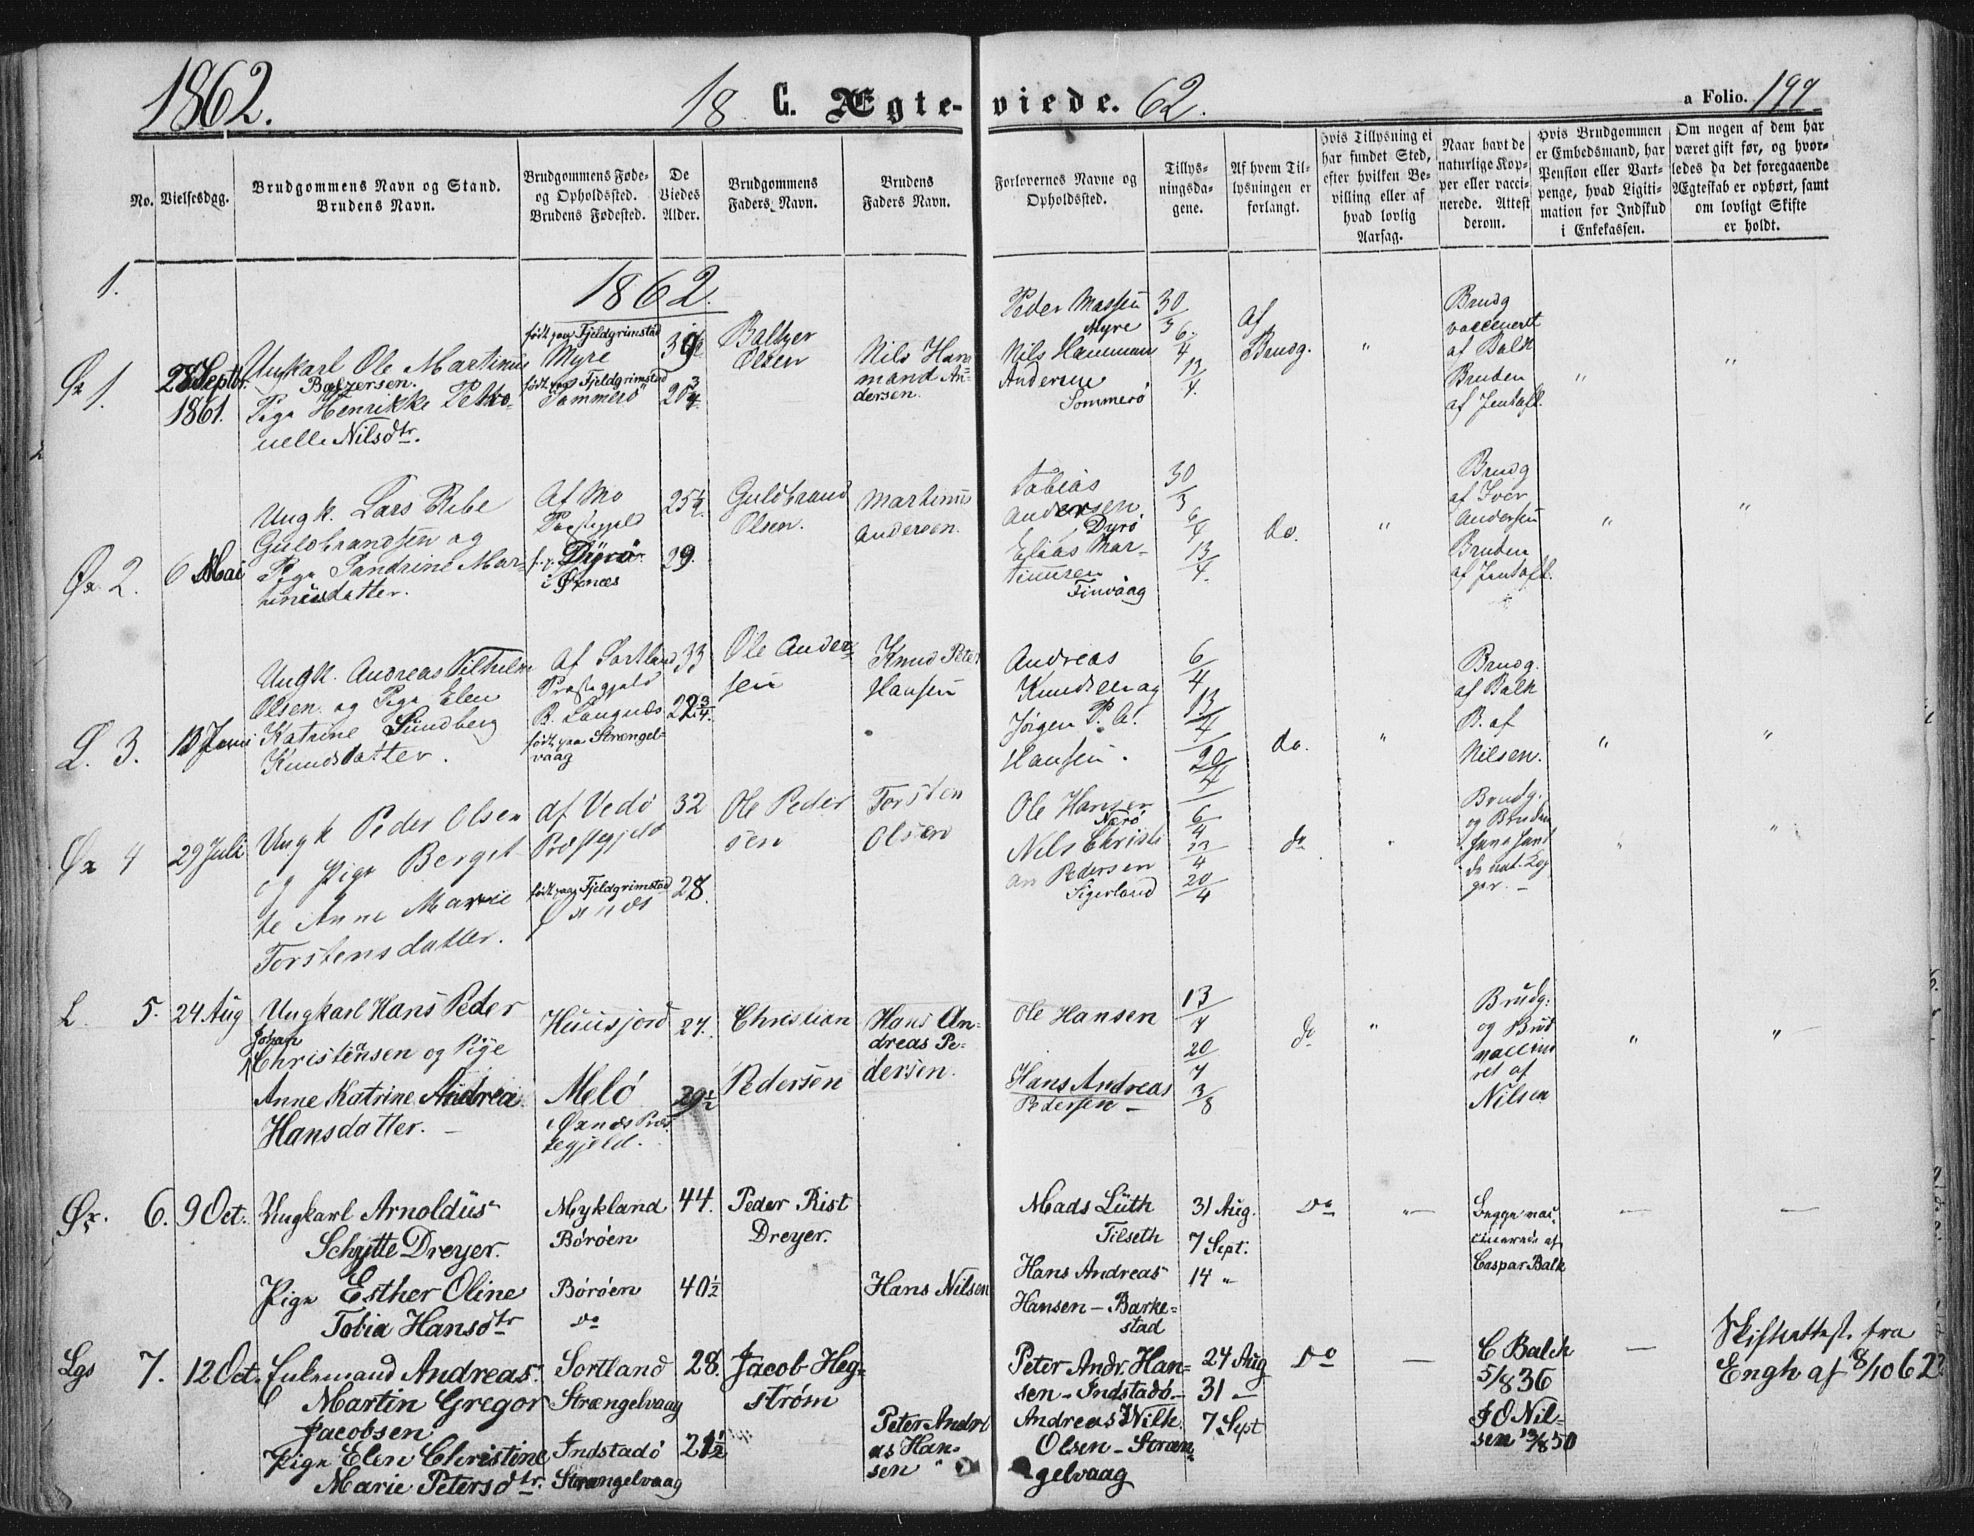 1862.
18 C. Ægte-viede. 62.
a Folio. 199
No.
Vielsesdag.
Brudgommens Navn og Stand.
Brudens Navn.
Brudgommens Føde-
og Opholdssted.
Brudens Fødested.
De
Viedes
Alder.
Brudgommens
Faders Navn.
Brudens
Faders Navn.
Forlovernes Navne og
Opholdssted.
Tillys-
ningsda-
gene.
Af hvem Til-
lysningen er
forlangt.
Hvis Tillysning ei
har fundet Sted,
efter hvilken Be-
villing eller af
hvad lovlig
Aarsag.
Naar havt de
naturlige Kop-
per eller vacci-
nerede. Attest
derom.
Hvis Brudgommen
er Embedsmand, har
Pension eller Vart-
penge, hvad Ligiti-
mation for Indskud
i Enkekassen.
Om nogen af dem har
været gift før, og hvor-
ledes da det foregaaende
Ægteskab er ophørt, samt
om lovligt Skifte
er holdt.
1.
1862.
Øx 1.
28 Septbr.
1861.
Ungkarl Ole Martinus
Balzersen.
Pige Henrikke Petro-
nelle Nilsdtr.
født paa Fjeldgrimstad
Myre
født paa Fjeldgrimstad
Sommerø
20 3/4
Baltzer
Olsen
Nils Ham
mand An-
dersen.
Peder Massen
Myre
Nils Hamman
Andersen
Sommerø
30/3
6/4
13/4.
af
Brudg.
"
Brudg
vaccineret
af Balk
Bruden
af Jentoft.
"
"
Øx 2.
6 Mai
Ungk. Lars Ribe
Guldbrandsen og
Pige Sandrine Mar-
tinusdatter.
Af Mo
Præstegjeld
Dyrø
i Øxnæs
25 1/2.
29.
Guldbrand
Olsen.
Martinus
Andersen.
Tobias
Andersen
Dyrø
Elias Mar-
tinusen
Finvaag
30/3
6/4
13/4.
do.
"
Brudg
af Iver
Andersen
Bruden
af Jentoft.
"
"
L. 3.
13 Juni
Ungk. Andreas Vilhelm
Olsen og Pige Elen
Katrine Sundberg
Knudsdatter.
Af Sortland
Præstegjeld
B. Langnæs
født paa Strængel-
vaag
33
22 3/4.
Ole Ander
sen
Knud Peter
Hansen
Andreas
Knudsen og
Jørgen P. A.
Hansen.
6/4
13/4
20/4
do.
"
Brudg.
af Balk
B. af
Nilsen.
"
"
Øx 4
29 Juli
Ungk Peder Olsen
og Pige Berget
te Anne Marie
Torstensdatter.
Af Vedø
Præstegjeld
født paa Fjeldgrimstad
Øxnæs
32
28.
Ole Peder
sen
Torsten
Olsen
Ole Hansen
Nærø
Nils Christi
an Pedersen
Sigerland
6/4
13/4
20/4
do
"
Brudg.
og Bruden
de nat. Kop
per. —
"
"
L. 5.
24 Aug
Ungkarl Hans Peder
Johan
Christensen og Pige
Anne Katrine Andrea
Hansdatter. —
Huusjord
Melø
Øxnæs Præs
tegjeld.
27.
29 1/2
Christian
Pedersen
Hans An-
dreas Pe-
dersen.
Ole Hansen
Hans Andreas
Pedersen —
13/7
20/7
3/8
do
"
Brudg.
og Brud
vaccine
ret af
Nilsen
"
"
Øx. 6.
9 Oct.
Ungkarl Arnoldus
Schytte Dreyer.
Pige Esther Oline
Tobia Hansdtr
Mykland
Børøen
Børøen
do
44.
40 1/2
Peder Rist
Dreyer.
Hans Nilsen
Mads Lüth
Tilseth
Hans Andreas
Hansen — Barke-
stad
31 Aug.
7 Sept.
14 "
Do
"
Begge vac-
cinerede af
Caspar Balk
—
—
Lgs 7.
12 Oct.
Enkemand Andreas
Martin Gregor
Jacobsen
Pige Elen Christine
Marie Petersdtr.
Sortland
Strængelvaag
Indstadø
Strængelvaag
28.
21 1/2
Jacob Heg-
strøm
Peter Andre
as Han-
sen
Peter Andr. Han-
sen — Indstadø —
Andreas Wilh.
Olsen — Stræn-
gelvaag
24 Aug
31 —
7 Sept
Do
—
C Balch
5/8 36
J O Nil-
sen 19/8 50
—
Skifteattest. fra
Engh af 8/10 62